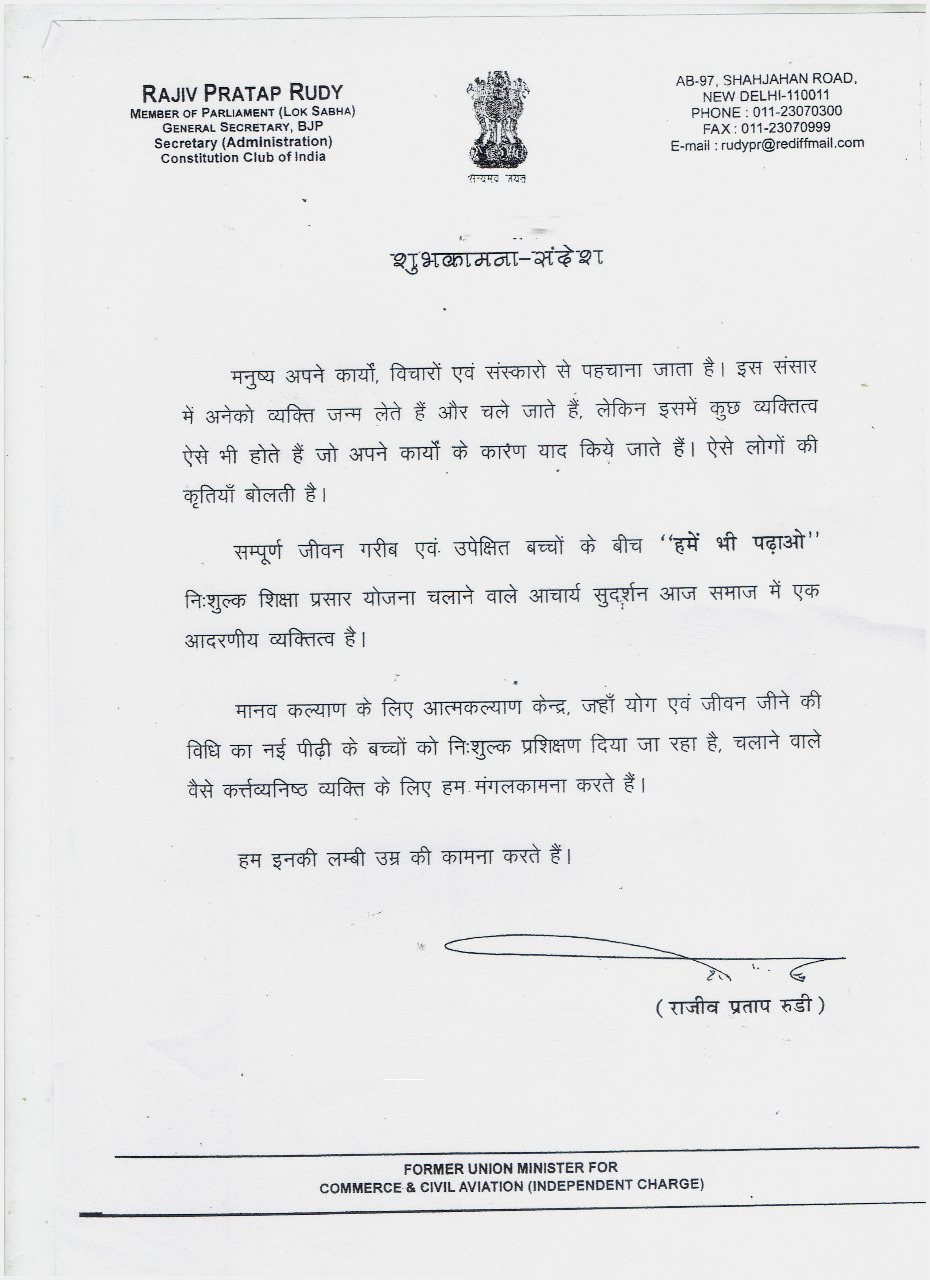 RAJIV PRATAP RUDY
MEMBER OF PARLIAMENT (LOK SABHA)
GENERAL SECRETARY, BJP
Secretary (Administration)
Constitution Club of India
सत्यमेव जयते
AB-97, SHAHJAHAN ROAD,
NEW DELHI-110011
PHONE : 011-23070300
FAX : 011-23070999
E-mail : rudypr@rediffmail.com
शुभकामना-संदेश
मनुष्य अपने कार्यों, विचारों एवं संस्कारो से पहचाना जाता है। इस संसार
में अनेको व्यक्ति जन्म लेते हैं और चले जाते हैं, लेकिन इसमें कुछ व्यक्तित्व
ऐसे भी होते हैं जो अपने कार्यों के कारण याद किये जाते हैं। ऐसे लोगों की
कृतियाँ बोलती है।
सम्पूर्ण जीवन गरीब एवं उपेक्षित बच्चों के बीच ‘‘हमें भी पढ़ाओ’’
निःशुल्क शिक्षा प्रसार योजना चलाने वाले आचार्य सुदर्शन आज समाज में एक
आदरणीय व्यक्तित्व है।
मानव कल्याण के लिए आत्मकल्याण केन्द्र, जहाँ योग एवं जीवन जीने की
विधि का नई पीढ़ी के बच्चों को निःशुल्क प्रशिक्षण दिया जा रहा है, चलाने वाले
वैसे कर्त्तव्यनिष्ठ व्यक्ति के लिए हम मंगलकामना करते हैं।
हम इनकी लम्बी उम्र की कामना करते हैं।
(राजीव प्रताप रुडी)
FORMER UNION MINISTER FOR
COMMERCE & CIVIL AVIATION (INDEPENDENT CHARGE)